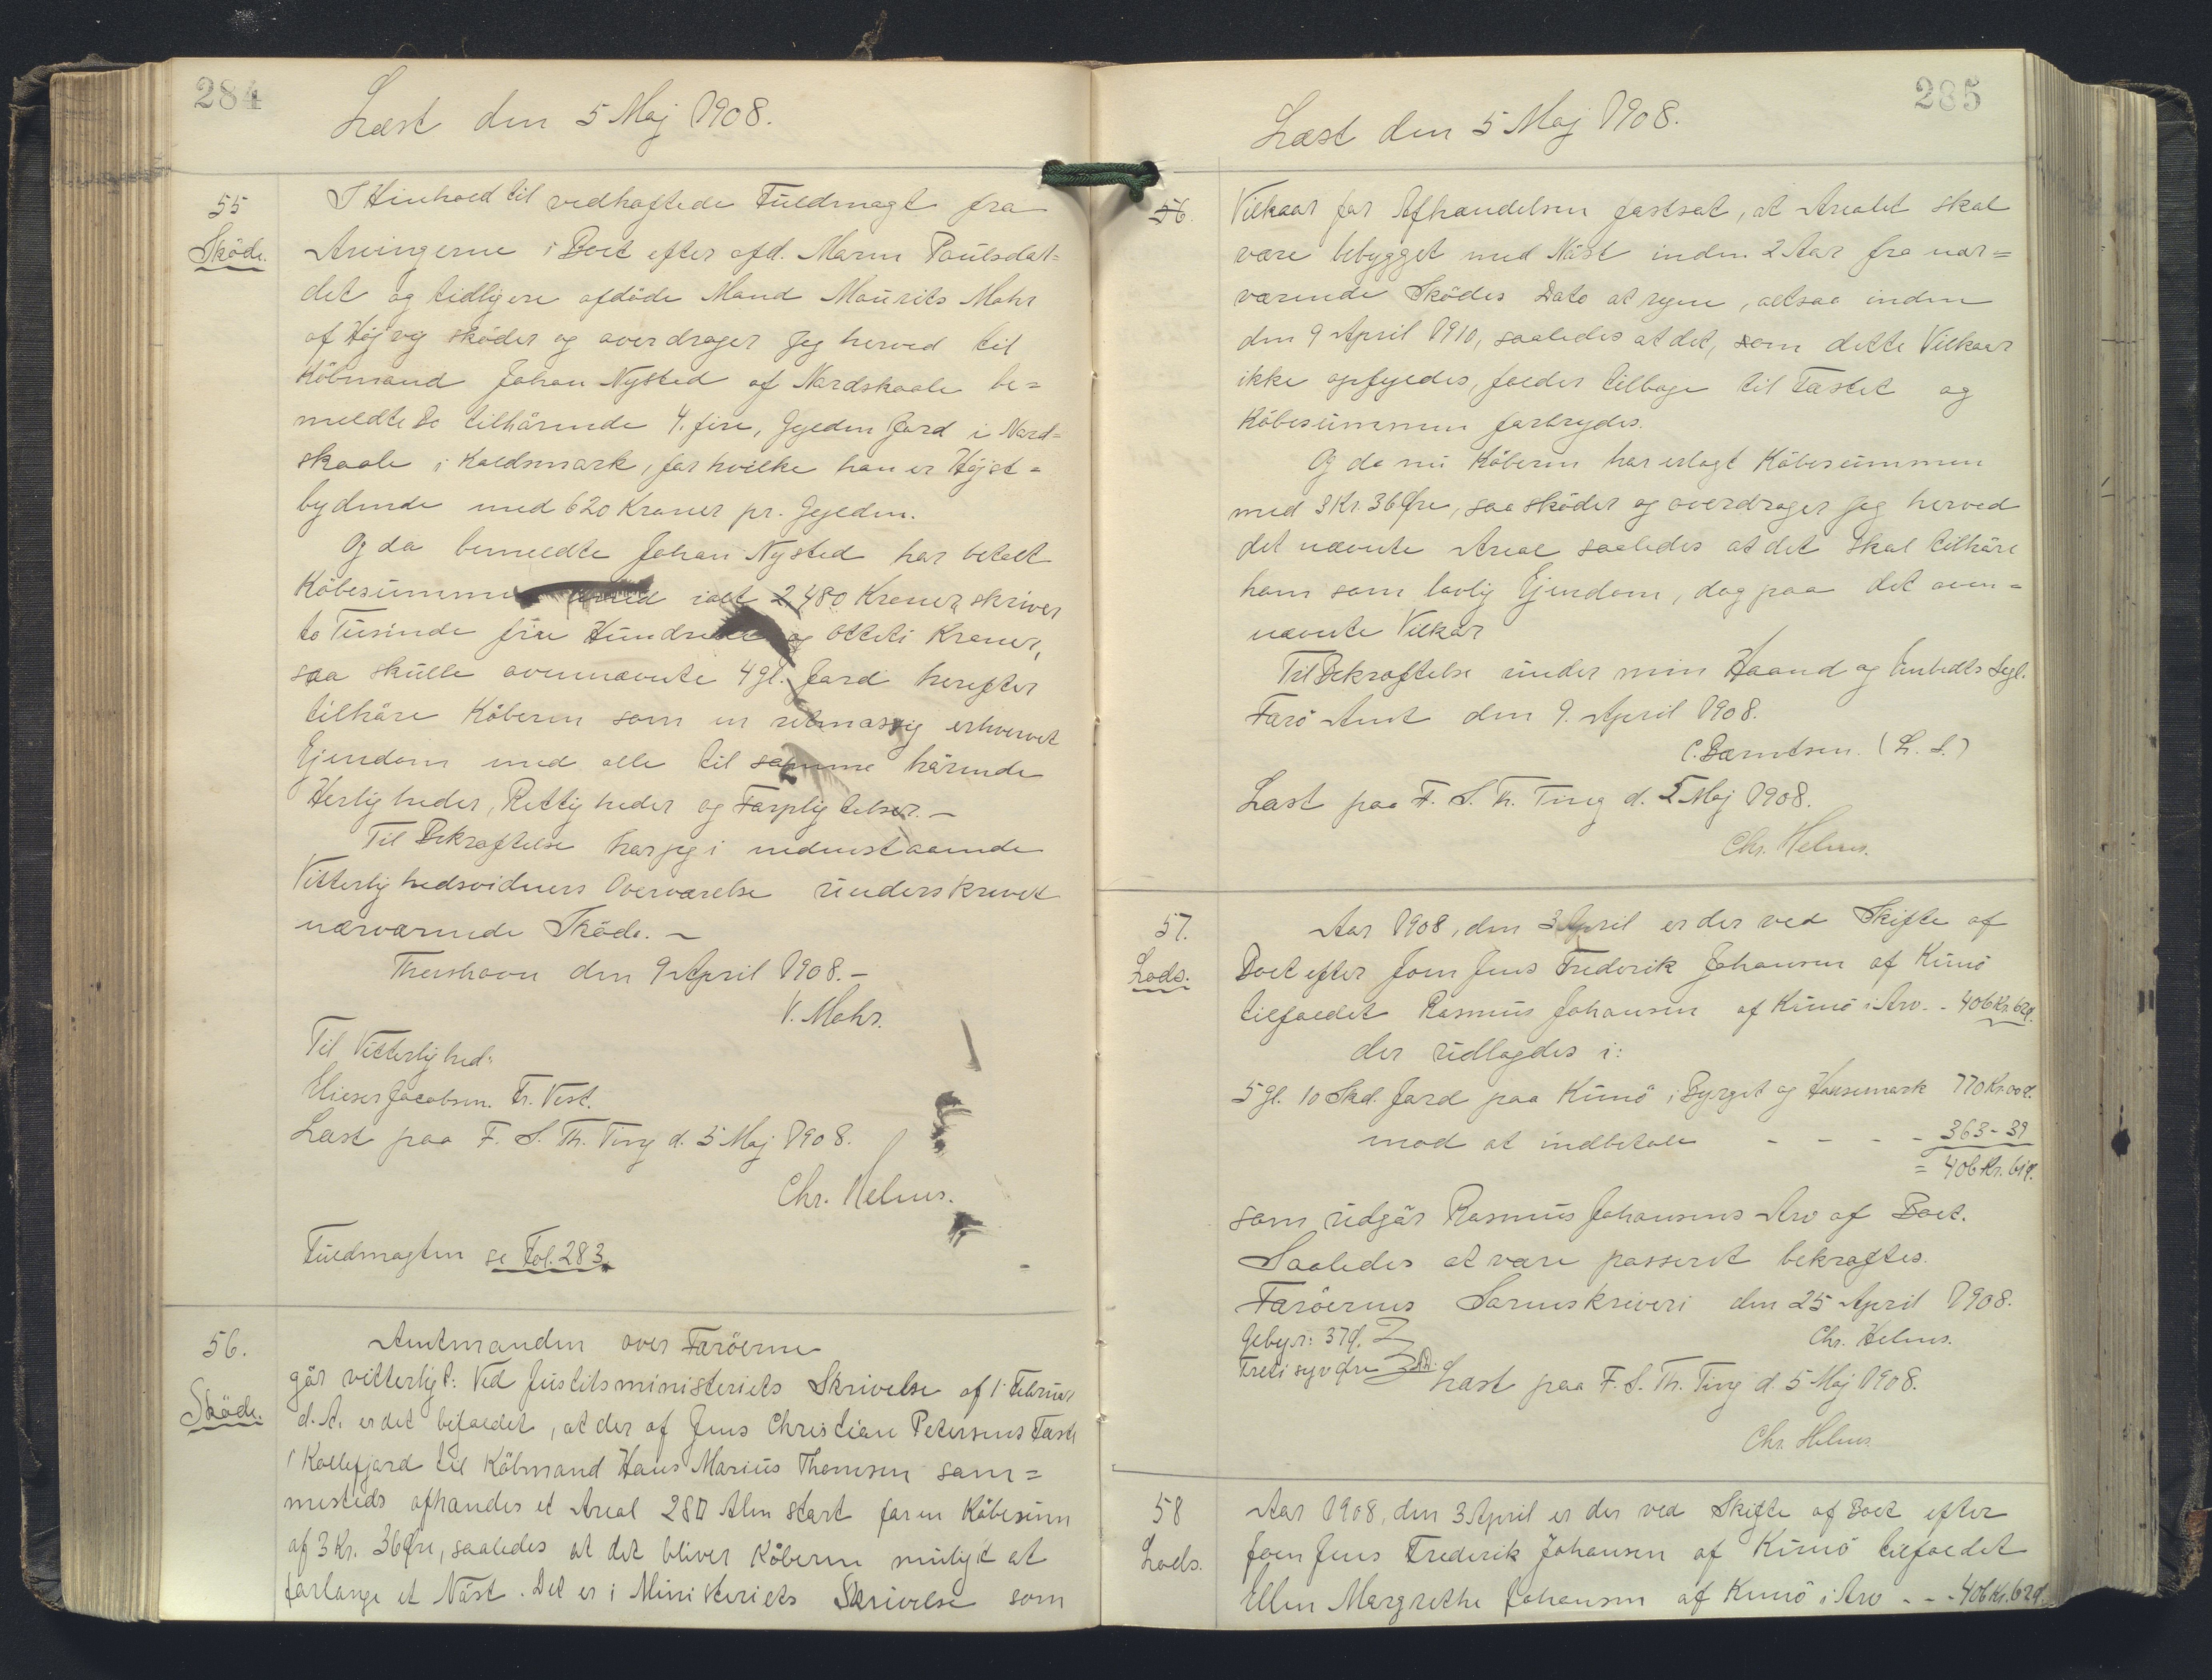 284
Læst den 5 Maj 1908.
55
Sköde.
I Hinhold til vedhæftede Fuldmagt fra
Arvingerne i Boet efter afd. Maren Poulsdat=
det og tidligere afdöde Mand Maurits Mohr
af Højvig sköder og overdrager jeg herved til
Köbmand Johan Nysted af Nordskaale be=
meldte Bo tilhörende 4. fire, Gylden Jord i Nord=
skaale i Kaldsmark, for hvilke han er Højst=
bydende med 620 Kroner pr. Gylden.
Og da bemeldte Johan Nysted har betalt
Köbesummen med ialt 2480 Kroner skriver
to Tusinde fire Hundrede og Otteti Kroner,
saa skulle ovennævnte 4 gl. Jord herefter
tilhöre Köberen som en retmæssig erhvervet
Ejendom med alle til samme hörende
Herligheder, Rettigheder og Forpligtelser. –
Til Bekræftelse har jeg i nedenstaaende
Vitterlighedsvidners Overværelse underskrevet
nærværende Sköde. –
Thorshavn den 9 April 1908. –
V. Mohr.
Til Vitterlighed:
Elieser Jacobsen. Fr. Vest.
Læst paa F. S. Th. Ting d. 5 Maj 1908.
Chr. Helms.
Fuldmagten se Fol. 283.
56.
Sköde.
Amtmanden over Færöerne
gör vitterligt: Ved Justitsministeriets Skrivelse af 1. Februar
d. A. er det befaldet, at der af Jens Christian Petersens Fæste
i Kollefjord til Köbmand Hans Marius Thomsen sam=
mesteds afhændes et Areal 28 □ Alen stort for en Köbesum
af 3 Kr. 36 Øre, saaledes at det bliver Köberen muligt at
forlænge et Nöst. Det er i Ministeriets Skrivelse som
285
Læst den 5 Maj 1908.
56.
Vilkaar for Afhændelsen fastsat, at Arealet skal
være bebygget med Nöst inden 2 Aar fra nær=
værende Sködes Dato at regne, altsaa inden
den 9 April 1910, saaledes at det, som dette Vilkaar
ikke opfyldes, falder tilbage til Fæstet og
Köbesummen forbrydes.
Og da nu Köberen har erlagt Köbesummen
med 3 Kr. 36 Øre, saa sköder og overdrager jeg herved
det nævnte Areal saaledes at det skal tilhöre
ham som lovlig Ejendom, dog paa det oven=
nævnte Vilkår
Til Bekræftelse under min Haand og Embedts Segl.
Færö Amt den 9. April 1908.
C. Bærentsen. (L. S.)
Læst paa F. S. Th. Ting d. 5 Maj 1908.
Chr. Helms.
57.
Lods.
Aar 1908, den 3 April er der ved Skifte af
Boet efter Joen Jens Frederik Johansen af Kunö
tilfaldet Rasmus Johansen af Kunö i Arv - - 406 Kr. 62 Ø.
der udlagdes i:
5 gl. 10 Skd. Jord paa Kunö i Byrget og Hansemark 770 Kr. 00 Ø.
mod at indbetale - - - - 363 - 39
= 406 Kr. 61 Ø.
som udgör Rasmus Johansens Arv af Boet.
Saaledes at være passeret bekræftes.
Færöernes Sorenskriveri den 25 April 1908.
Chr. Helms.
Gebyr: 37 Ø.
Treti syv Øre
Læst paa F. S. Th. Ting d. 5 Maj 1908.
Chr. Helms
58
Lods.
Aar 1908, den 3 April er der ved Skifte af Boet efter
Joen Jens Frederik Johansen af Kunö tilfaldet
Ellen Margrethe Johansen af Kunö i Arv - - - 406 Kr. 62 Ø.